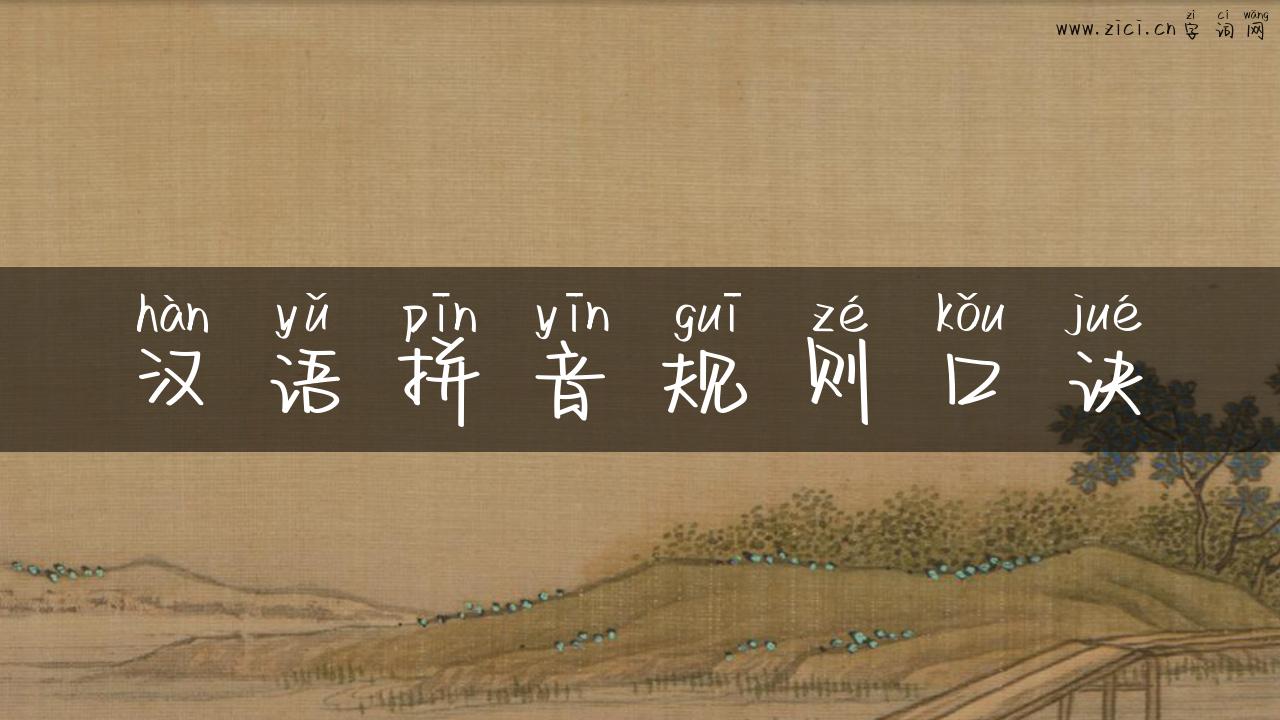 zì cí wǎng
www.zici.cn字词网
hàn yǔ pīn yīn guī zé kǒu jué
汉语拼音规则口诀